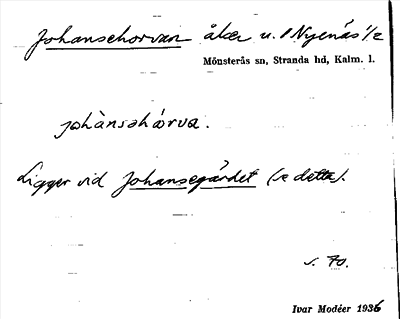 Johansehorvan åker u. Nynäs 1/2
Mönsterås sn, Stranda hd, Kalm. l.
johànsəhórva.
Ligger vid Johansegärdet (se detta).
s. 70.
Ivar Modéer 1936